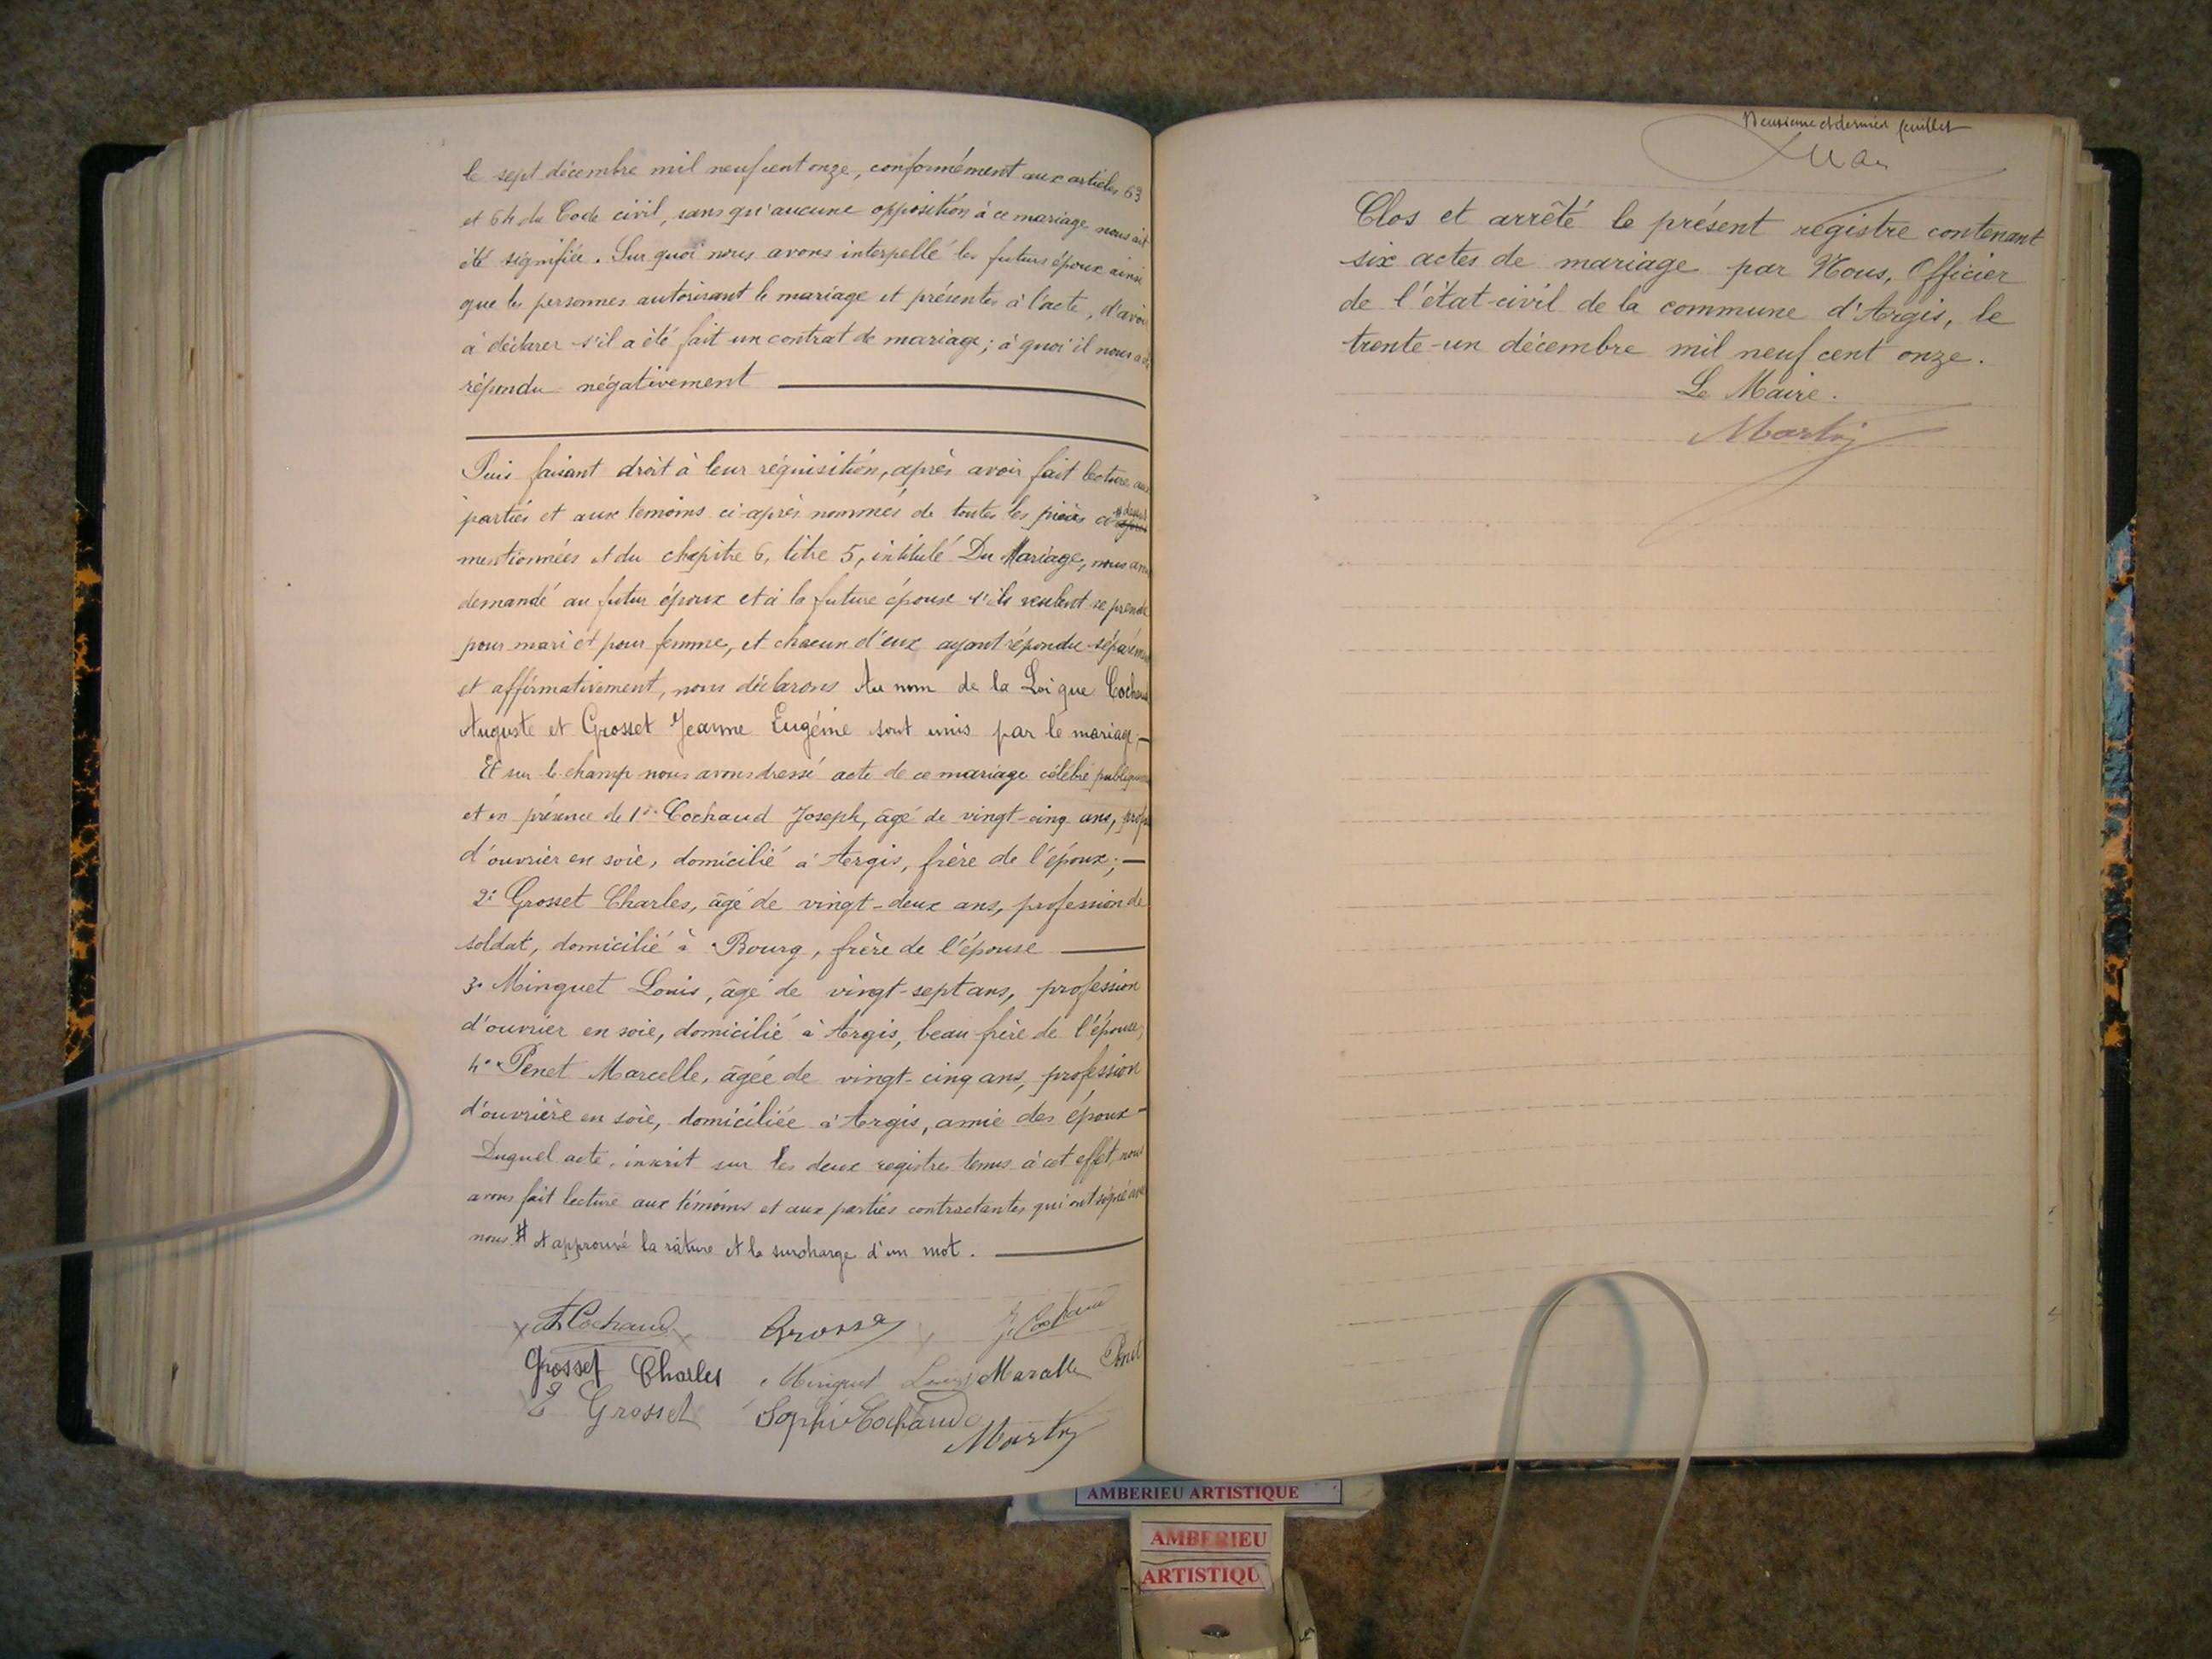 le sept décembre mil neuf cent onze, conformément aux articles 63
et 64 du Code civil, sans qu'aucune opposition à ce mariage nous ait
été signifiée. Sur quoi nous avons interpellé les futurs époux ainsi
que les personnes autorisant le mariage et présentes à l'acte, d'avoir
à déclarer s'il a été fait un contrat de mariage; à quoi il nous a
répondu négativement
Puis faisant droit à leur réquisition, après avoir fait lecture aux
parties et aux témoins ci-après nommés de toutes les pièces ci
mentionnées et du chapitre 6, titre 5, intitulé Du Mariage, nous
demandé au futur époux et à la future épouse s'ils veulent se prendre
pour mari et pour femme, et chacun d'eux ayant répondu séparément
et affirmativement, nous déclarons Au nom de la Loi que Cochaud
Auguste et Grosset Jeanne Eugénie sont unis par le mariage,
Et sur le champ nous avons dressé acte de ce mariage célébré publiquement
et en présence de 1° Cochaud Joseph, âgé de vingt-cinq ans,
d'ouvrier en soie, domicilié à Argis, frère de l'époux;
2° Grosset Charles, âgé de vingt-deux ans, profession de
soldat, domicilié à Bourg, frère de l'épouse
3° Minguet Louis, âgé de vingt-sept ans, profession
d'ouvrier en soie, domicilié à Argis, beau frère de l'épouse;
4° Penet Marcelle, âgée de vingt-cinq ans, profession
d'ouvrière en soie, domiciliée à Argis, amie des époux
Duquel acte, inscrit sur les deux registres tenus à cet effet, nous
avons fait lecture aux témoins et aux parties contractantes qui ont signé avec
nous # et approuvé la râture et la surcharge d'un mot.
A Cochaud Grosset J. Cochaud
Grosset Charles Minguet Louis Marcelle Penet
E Grosset Sophie Cochaud
Martin
Neuvième et dernier feuillet
Clos et arrêté le présent registre contenant
six actes de mariage par Nous, Officier
de l'état-civil de la commune d'Argis, le
trente-un décembre mil neuf cent onze.
Le Maire.
Martin
AMBERIEU ARTISTIQUE
AMBERIEU
ARTISTIQU